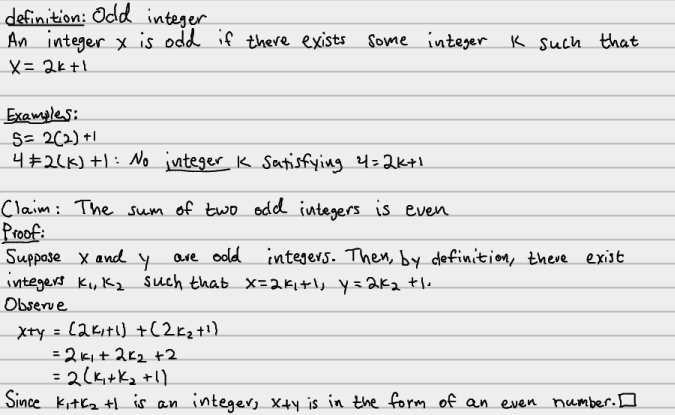 definition: Odd integer
An integer x is odd if there exists some integer K such that
X = 2K+1
Examples:
5 = 2(2)+1
4 ≠ 2(K)+1 : No integer K satisfying 4=2K+1
Claim: The sum of two odd integers is even
Proof:
Suppose x and y are odd integers. Then, by definition, there exist
integers K₁, K₂ such that x=2K₁+1, y=2K₂+1.
Observe
x+y = (2K₁+1) + (2K₂+1)
= 2K₁ + 2K₂ +2
= 2(K₁+K₂+1)
Since K₁+K₂+1 is an integer, x+y is in the form of an even number. □